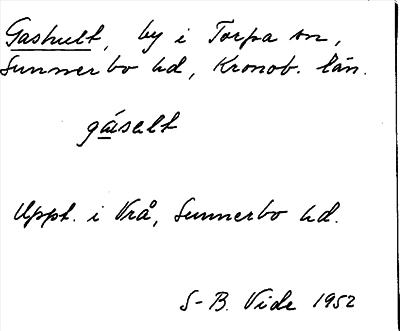 Gashult, by i Torpa sn,
Sunnerbo hd, Kronob. län.
gásalt
Uppt. i Vrå, Sunnerbo hd.
S-B. Vide 1952